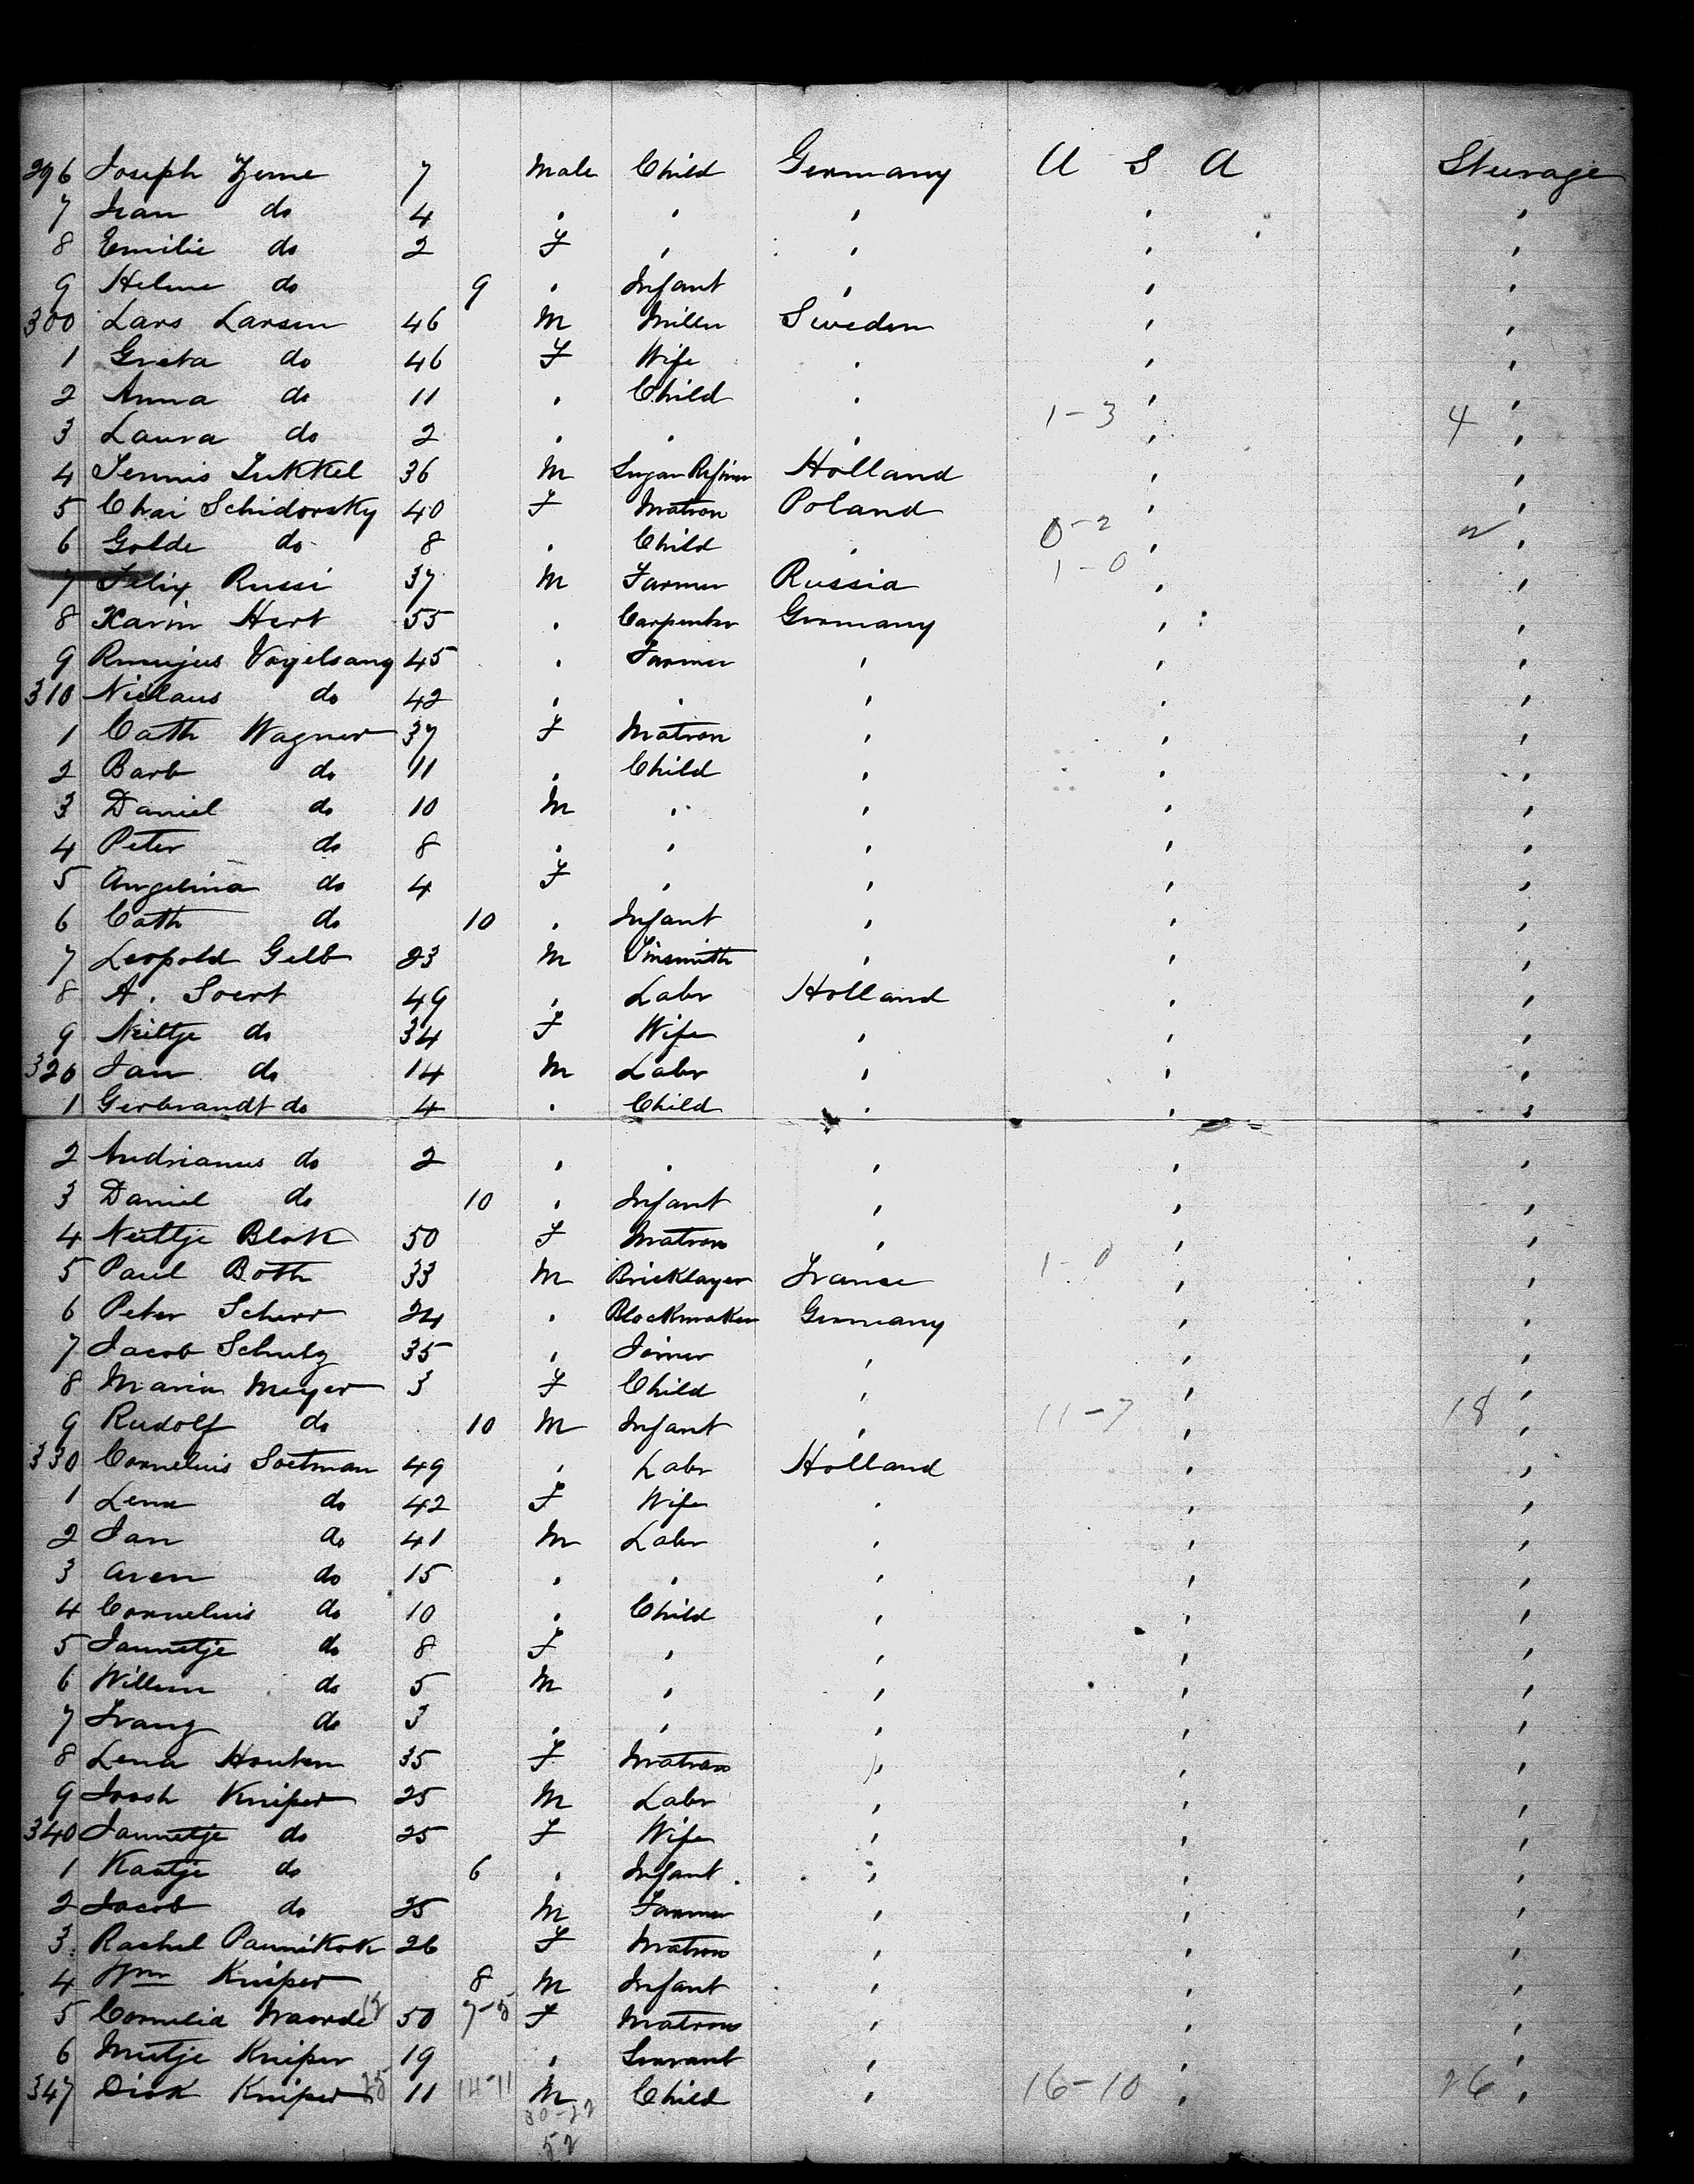 296 Joseph Zerne 7 Male Child Germany U S A Steerage
7 Jean do 4 " " " " "
8 Emilie do 2 F " " " "
9 Helene do 9 " Infant " " "
300 Lars Larsen 46 M Miller Sweden " "
1 Greta do 46 F Wife " " "
2 Anna do 11 " Child " " "
1-3 4
3 Laura do 2 " " " " "
4 36 M Sugar Refiner Holland " "
5 Chai Schidorsky 40 F Matron Poland " "
0-2 2
6 Golde do 8 " Child " " "
1-0
7 Felix Russi 37 M Farmer Russia " "
8 Xavin Hert 55 " Carpenter Germany " "
9 Vogelsang 45 " Farmer " " "
310 Niclaus do 42 " " " " "
1 Cath Wagner 37 F Matron " " "
2 Barb do 11 " Child " " "
3 Daniel do 10 M " " " "
4 Peter do 8 " " " " "
5 Angelina do 4 F " " " "
6 Cath do 10 " Infant " " "
7 Leopold Gelb 23 M Tinsmith " " "
8 A. Soert 49 " Labr Holland " "
9 Neeltje do 34 F Wife " " "
320 Jan do 14 M Labr " " "
1 Gerbrandt do 4 " Child " " "
2 Andrianus do 2 " " " " "
3 Daniel do 10 " Infant " " "
4 Neeltje Blok 50 F Matron " " "
1-0
5 Paul Both 33 M Bricklayer France " "
6 Peter Scherr 24 " Blockmaker Germany " "
7 Jacob Schulz 35 " Joiner " " "
8 Maria Meyer 3 F Child " " "
11-7 18
9 Rudolf do 10 M Infant " " "
330 Cornelius Soetman 49 " Labr Holland " "
1 Lena do 42 F Wife " " "
2 Jan do 41 M Labr " " "
3 Aren do 15 " " " " "
4 Cornelius do 10 " Child " " "
5 Jannetje do 8 F " " " "
6 Willem do 5 M " " " "
7 Franz do 3 " " " " "
8 Lena Houten 35 F Matron " " "
9 Kniper 25 M Labr " " "
340 Jannetje do 25 F Wife " " "
1 Kaatje do 6 " Infant " " "
2 Jacob do 25 M Farmer " " "
3 Rachel Pannikok 26 F Matron " " "
4 Wm Kniper 8 M Infant " " "
5 Cornelia 12 50 7-5 F Matron " " "
6 Mietje Kniper 19 " Servant " " "
347 Dirk Kniper 25 11 14-11 M Child " 16-10 " 26 "
30-22
52